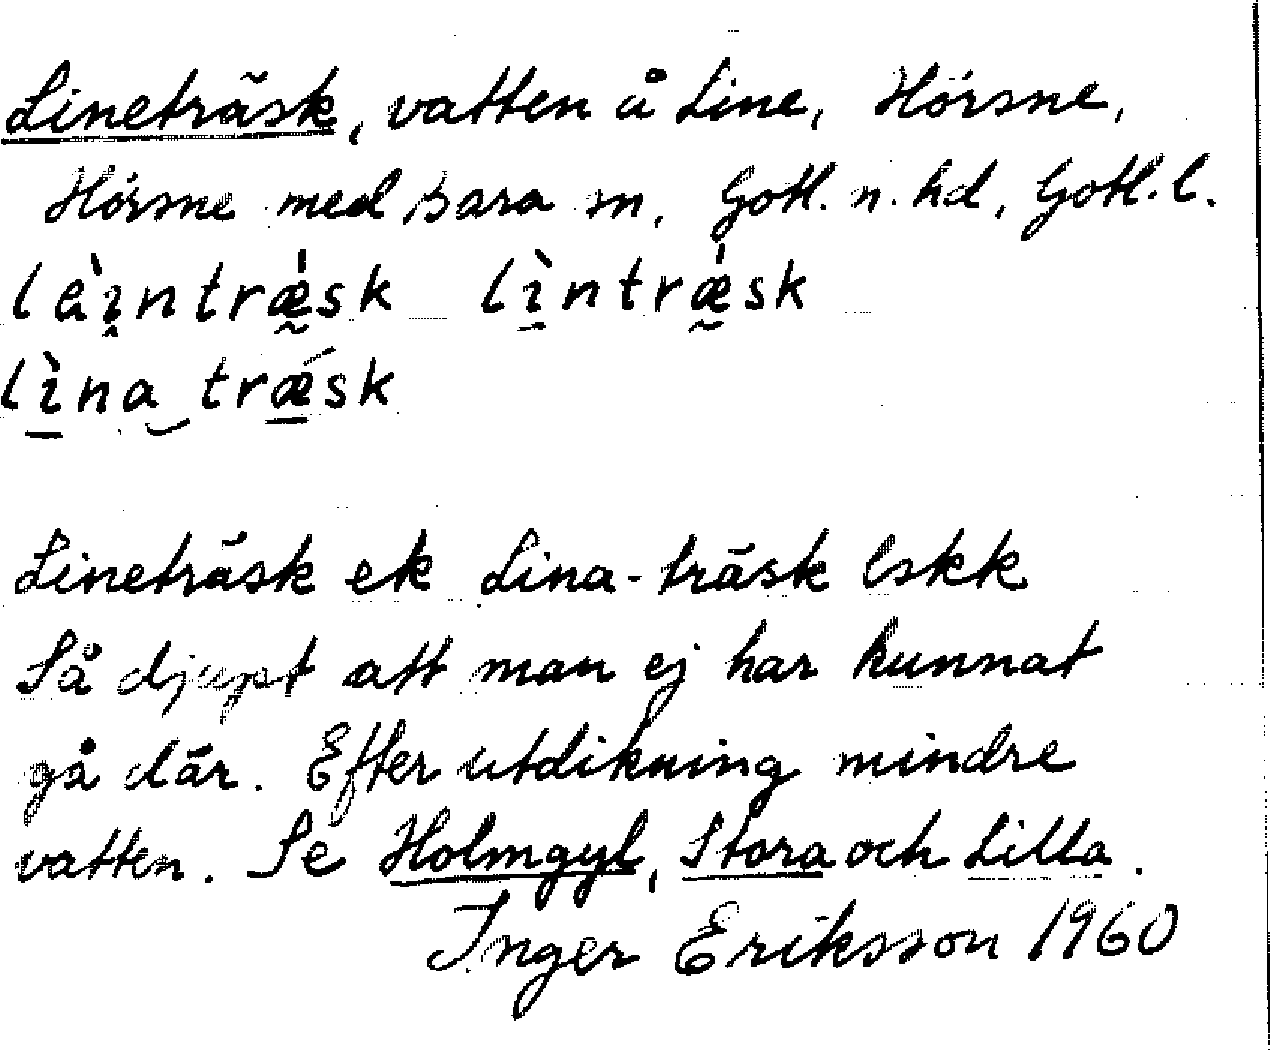 Lineträsk, vatten å Line, Hörsne,
Hörsne med Bara sn, Gotl. n. hd, Gotl. l.
lèi̯ntrǽ̰sk lì̱ntrǽ̰sk
lì̱na‿trǽ̱sk
Lineträsk ek Lina-träsk lskk
Så djupt att man ej har kunnat
gå där. Efter utdikning mindre
vatten. Se Holmgyl, Stora och Lilla.
Inger Eriksson 1960